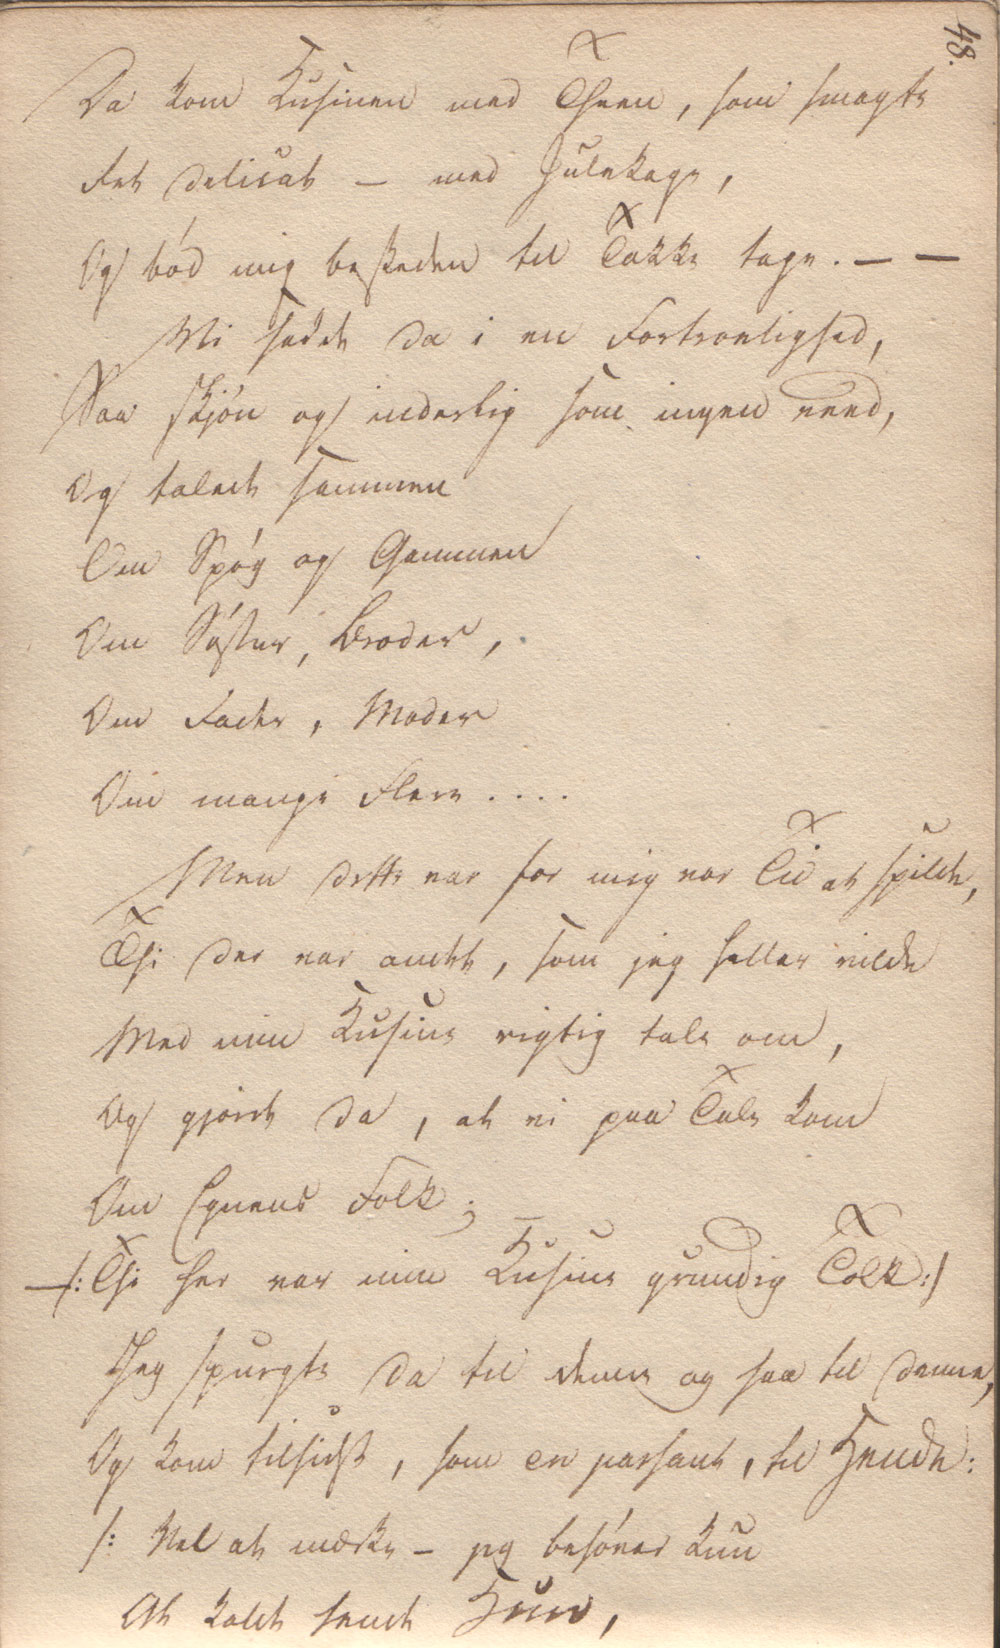 48.
Da kom Kusinen med Theen, som smagte
Ret delicat – med Julekage,
Og bød mig beskeden til Takke tage. – –
Vi sadde da i en Fortrolighed,
Saa skjøn og inderlig som ingen veed,
Og talede sammen
Om Spøg og Gammen
Om Søster, Broder,
Om Fader, Moder
Om mange Flere ....
Men dette var for mig var Tid at spilde,
Thi der var andet, som jeg heller vilde
Med min Kusine rigtig tale om,
Og gjorde da, at vi paa Tale kom
Om Egnens Folk;
– /: Thi her var min Kusine grundig Tolk :/
Jeg spurgte da til denne og saa til denne,
Og kom tilsidst, som en passant, til Hende:
/: Vel at mærke – jeg behøver kun
At kalde hende Hun,